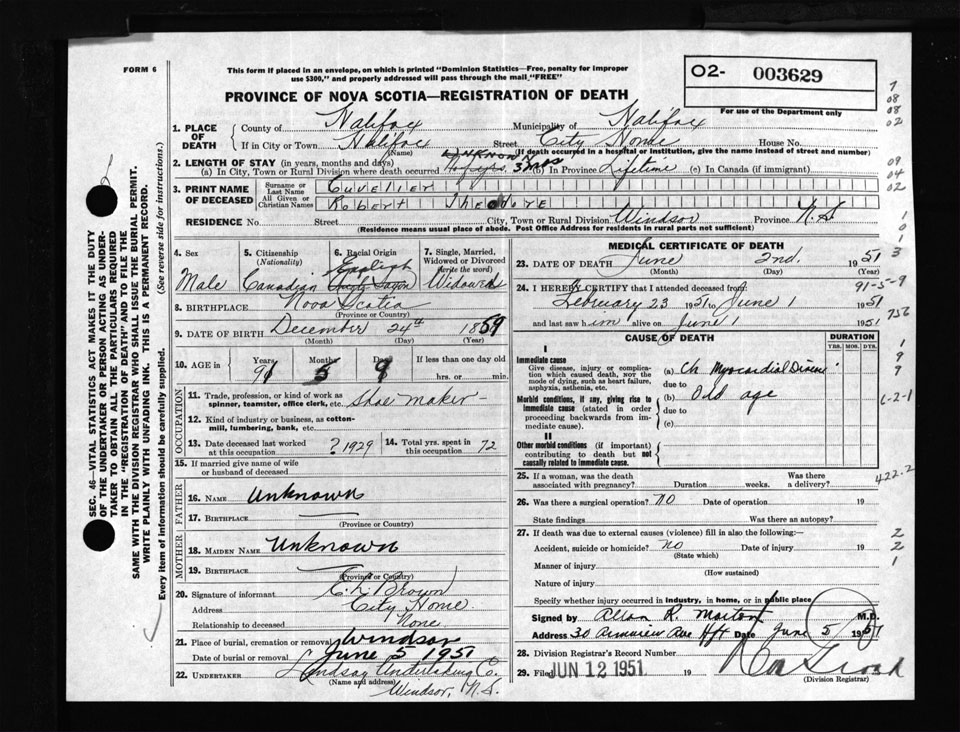 FORM 6
This form if placed in an envelope, on which is printed "Dominion Statistics—Free, penalty for improper
use $300," and properly addressed will pass through the mail "FREE"
O2- 003629
For use of the Department only
PROVINCE OF NOVA SCOTIA—REGISTRATION OF DEATH
SEC. 46—VITAL STATISTICS ACT MAKES IT THE DUTY
OF THE UNDERTAKER OR PERSON ACTING AS UNDER-
TAKER TO OBTAIN ALL THE PARTICULARS REQUIRED
IN THE "REGISTRATION OF DEATH" AND TO FILE THE
SAME WITH THE DIVISION REGISTRAR WHO SHALL ISSUE THE BURIAL PERMIT.
WRITE PLAINLY WITH UNFADING INK. THIS IS A PERMANENT RECORD.
Every item of information should be carefully supplied. (See reverse side for instructions.)
1. PLACE OF DEATH County of Halifax Municipality of Halifax
If in City or Town Halifax Street City Home House No.
(Name) (If death occurred in a hospital or institution, give the name instead of street and number)
2. LENGTH OF STAY (in years, months and days)
(a) In City, Town or Rural Division where death occurred 3 mos (b) In Province Lifetime (c) In Canada (if immigrant)
3. PRINT NAME OF DECEASED Surname or Last Name Cuvelier
All Given or Christian Names Robert Theodore
RESIDENCE No. Street City, Town or Rural Division Windsor Province N.S
(Residence means usual place of abode. Post Office Address for residents in rural parts not sufficient)
4. Sex 5. Citizenship (Nationality) 6. Racial Origin 7. Single, Married, Widowed or Divorced (write the word)
Male Canadian English Widowed
8. BIRTHPLACE Nova Scotia
(Province or Country)
9. DATE OF BIRTH December 24th 1859
(Month) (Day) (Year)
10. AGE in Years Months Days If less than one day old
91 5 9 hrs. or min.
OCCUPATION
11. Trade, profession, or kind of work as
spinner, teamster, office clerk, etc. Shoe maker
12. Kind of industry or business, as cotton-
mill, lumbering, bank, etc.
13. Date deceased last worked at this occupation ? 1929 14. Total yrs. spent in this occupation 72
15. If married give name of wife
or husband of deceased
FATHER
16. NAME Unknown
17. BIRTHPLACE —
(Province or Country)
MOTHER
18. MAIDEN NAME Unknown
19. BIRTHPLACE —
(Province or Country)
20. Signature of informant E. L. Brown
Address City Home
Relationship to deceased None
21. Place of burial, cremation or removal Windsor
Date of burial or removal June 5 1951
22. UNDERTAKER Lindsay Undertaking Co.
(Name and address)
Windsor, N.S.
MEDICAL CERTIFICATE OF DEATH
23. DATE OF DEATH June 2nd. 1951
(Month) (Day) (Year)
24. I HEREBY CERTIFY that I attended deceased from
February 23 1951 to June 1 1951
and last saw him alive on June 1 1951
CAUSE OF DEATH DURATION
YRS. MOS. DYS.
I
Immediate cause
Give disease, injury or complica-
tion which caused death, not the
mode of dying, such as heart failure,
asphyxia, asthenia, etc.
(a) Ch Myocardial Disease
due to
Morbid conditions, if any, giving rise to
immediate cause (stated in order
proceeding backwards from im-
mediate cause).
(b) Old age
due to
(c)
II
Other morbid conditions (if important)
contributing to death but not
causally related to immediate cause.
25. If a woman, was the death
associated with pregnancy? Duration weeks. Was there a delivery?
26. Was there a surgical operation? No Date of operation 19
State findings Was there an autopsy?
27. If death was due to external causes (violence) fill in also the following:—
Accident, suicide or homicide? No Date of injury 19
(State which)
Manner of injury
(How sustained)
Nature of injury
Specify whether injury occurred in industry, in home, or in public place
Signed by Allan R. Morton M.D.
Address 30 Armview Ave Hfx Date June 5 1951
28. Division Registrar's Record Number
29. Filed JUN 12 1951 19
(Division Registrar)
7
08
08
02
09
04
02
1
0
1
3
91-5-9
756
1
9
9
6-2-1
422.2
2
2
1